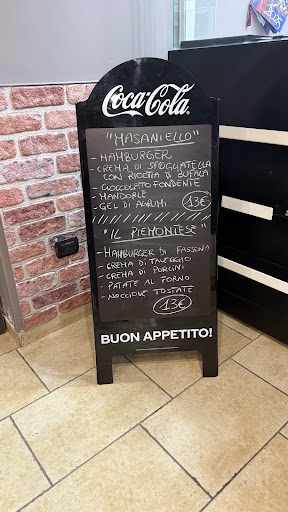 Coca-Cola
"MASANIELLO"
- HAMBURGER
- CREMA DI SFOGLIATELLA
CON RICOTTA DI BUFALA
- CIOCCOLATO FONDENTE
- MANDORLE
- GEL DI AGRUMI 13€
"IL PIEMONTESE"
- HAMBURGER DI FASSONA
- CREMA DI TALEGGIO
- CREMA DI PORCINI
- PATATE AL FORNO
- NOCCIOLE TOSTATE
13€
BUON APPETITO!